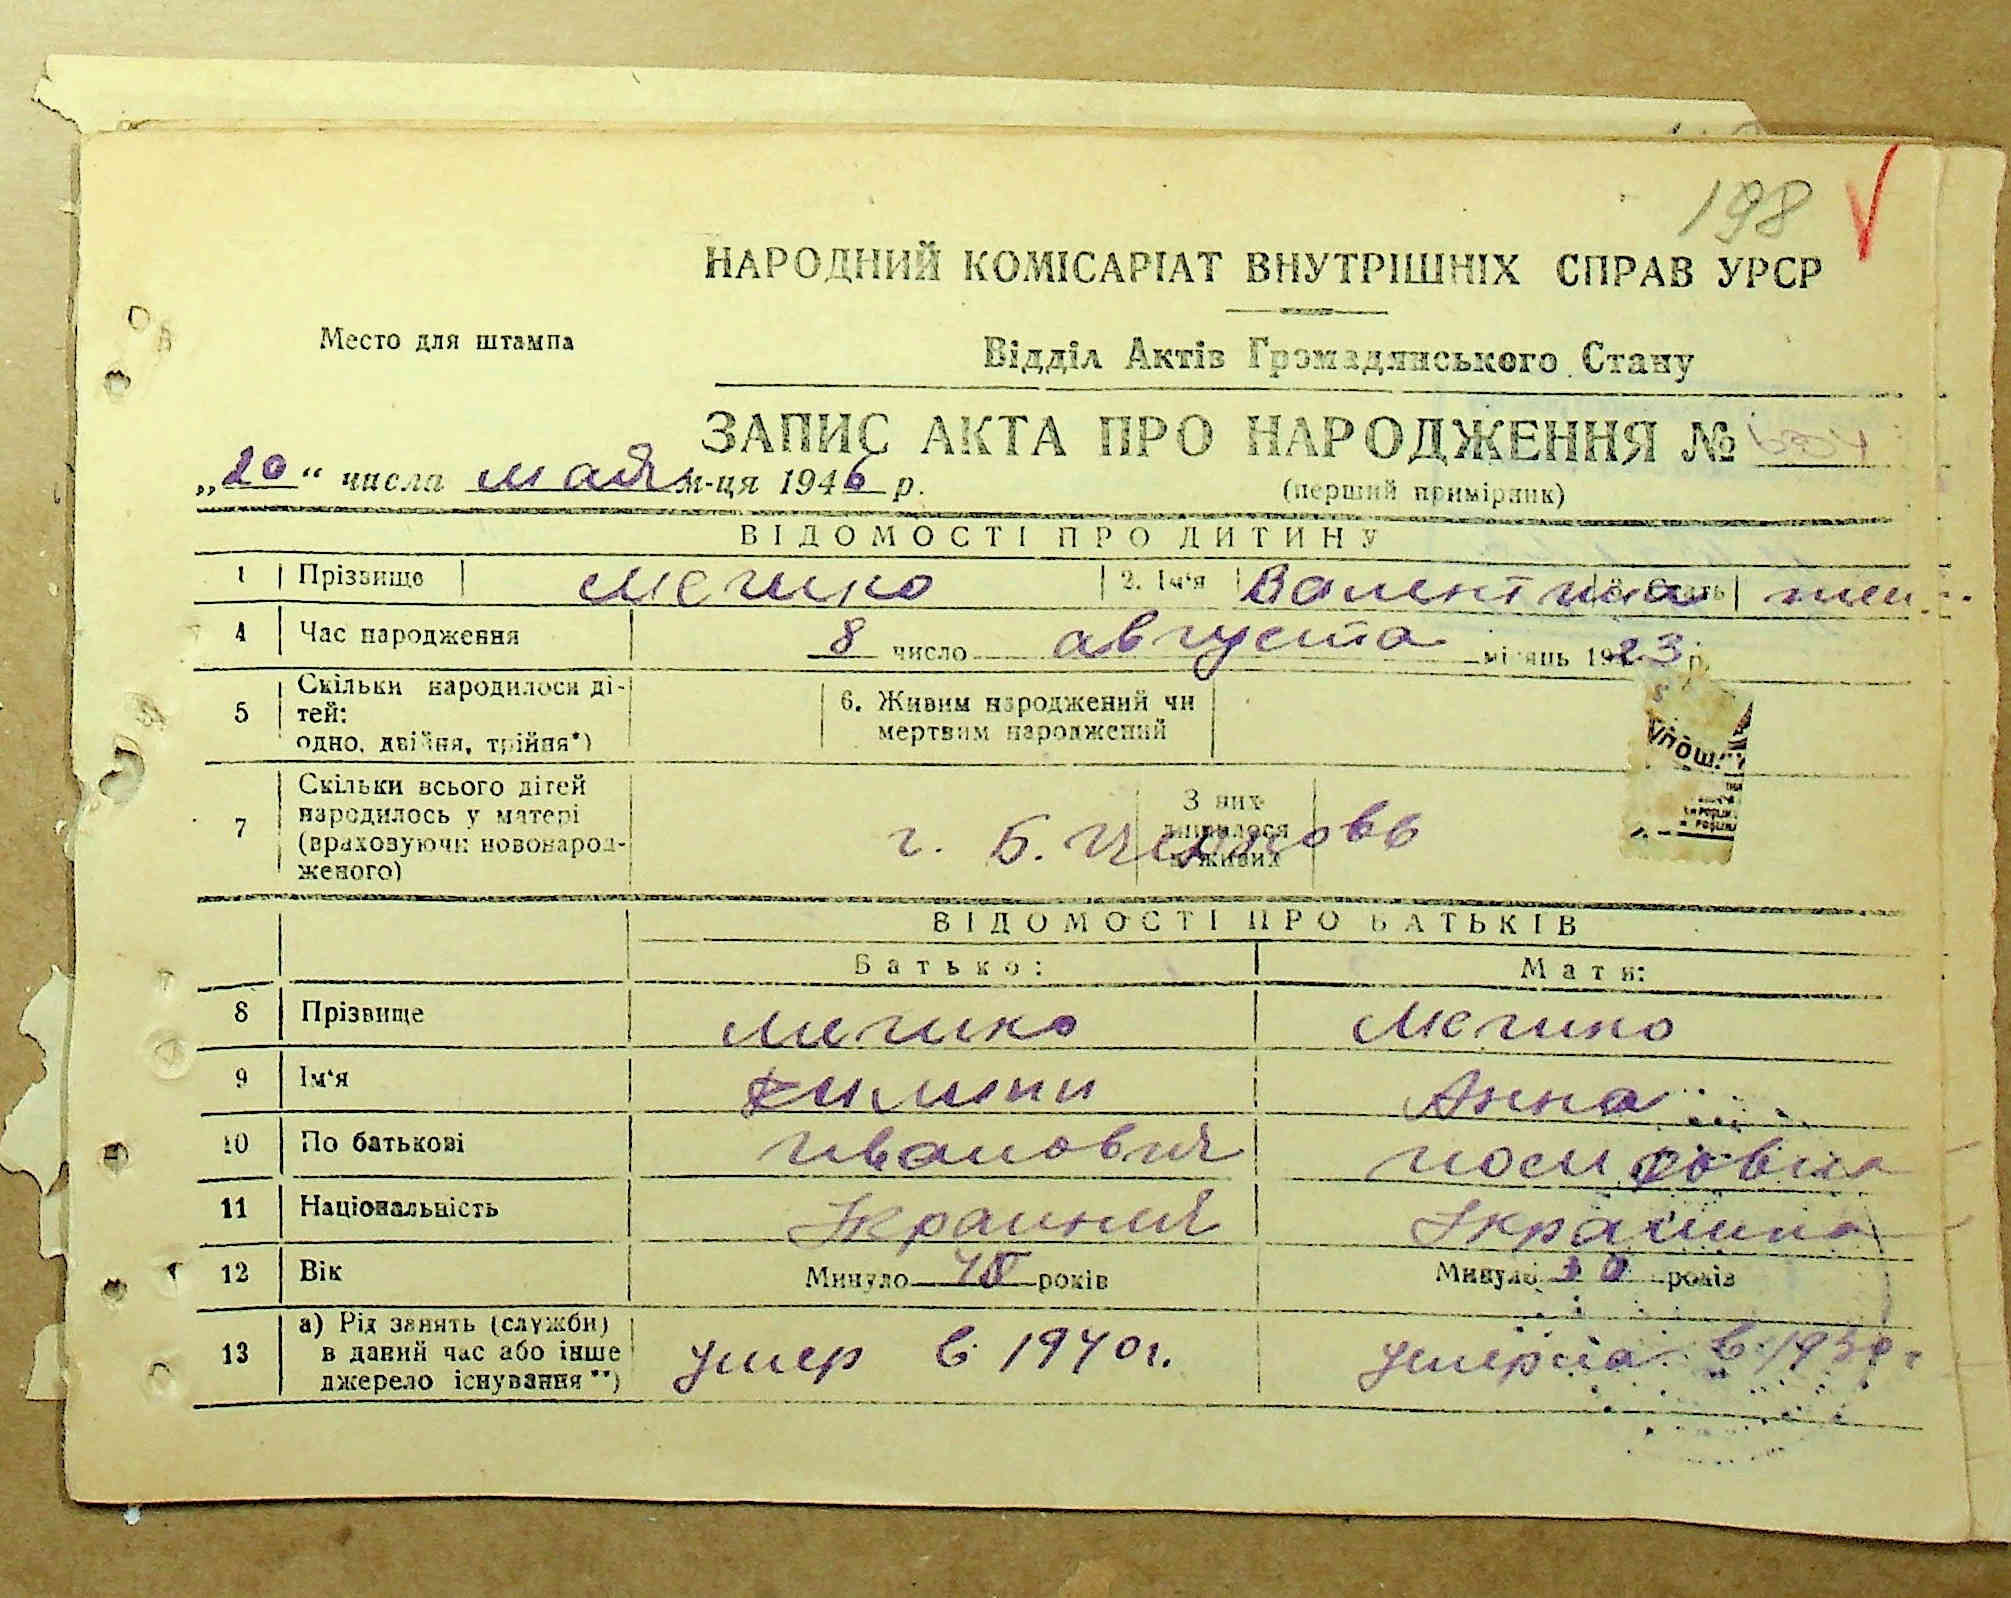 198
НАРОДНИЙ КОМІСАРІАТ ВНУТРІШНІХ СПРАВ УРСР
Место для штампа
Відділ Актів Громадянського Стану
ЗАПИС АКТА ПРО НАРОДЖЕННЯ №
„20“ числа мая м-ця 1946 р.
(перший примірник)
ВІДОМОСТІ ПРО ДИТИНУ
1 Прізвище 2. Ім‘я Валентина жен.
4 Час народження 8 число августа місяць 1923 р.
5 Скільки народилося ді-
тей:
одно, двійня, трійня*)
6. Живим народжений чи
мертвим народжений
7 Скільки всього дітей
народилось у матері
(враховуючи новонарод-
женого)
З них
лишилося
в живих
г. Б. Церковь
ВІДОМОСТІ ПРО БАТЬКІВ
Батько: Мати:
8 Прізвище
9 Ім‘я Анна
10 По батькові Иванович Иосиповна
11 Національність Украинец Украинка
12 Вік Минуло років Минуло років
13 а) Рід занять (служби)
в даний час або інше
джерело існування**)
умер в 1940 г. умерла в